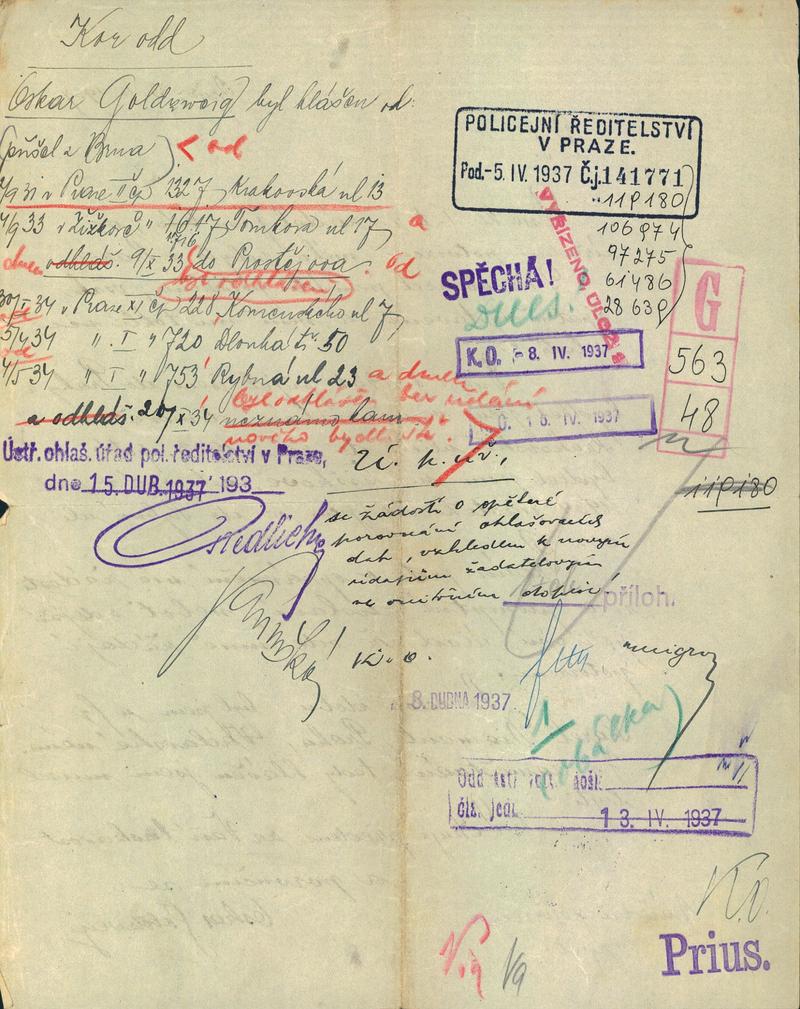 Kor odd
Oskar Goldzweig byl hlášen od:
(přišel z Brna) < od
9/9 31 v Praze II čp 1327 Krakovská ul 13
9/9 33 v Žižkově " 1617 Tomkova ul 17 a
dnem odhláš. 9/X 33 do Prostějova. od
byl odhlášen
30/I 34 v Praze XI čp 228 Komenského ul 7
5/4 34 " I " 720 Dlouhá tř. 50
4/5 34 " I " 753 Rybná ul 23 a dnem
a odhláš. 20/X 34 neznámo kam
byl odhlášen bez udání
nového bydliště.
Ústř. ohlaš. úřad pol. ředitelství v Praze,
dne 15. DUB. 1937 193
POLICEJNÍ ŘEDITELSTVÍ
V PRAZE.
Pod. -5. IV. 1937 Č.j. 141771
"119180
106974
97275
61486
28639
VYŘÍZENO, ULOŽ
SPĚCHÁ!
Dnes.
K. O. - 8. IV. 1937
O. 1 6. IV. 1937
G
563
48
119180
Ú. h. úř.,
se žádostí o zpětné
porovnání ohlašovacích
dat, vzhledem k novým
údajům žadatelovým
ve vnitřním dopise.
příloh.
K. o.
8. DUBNA 1937.
1
(obálka)
došlo
čís. jedn. 1 3. IV. 1937
K.O.
Prius.